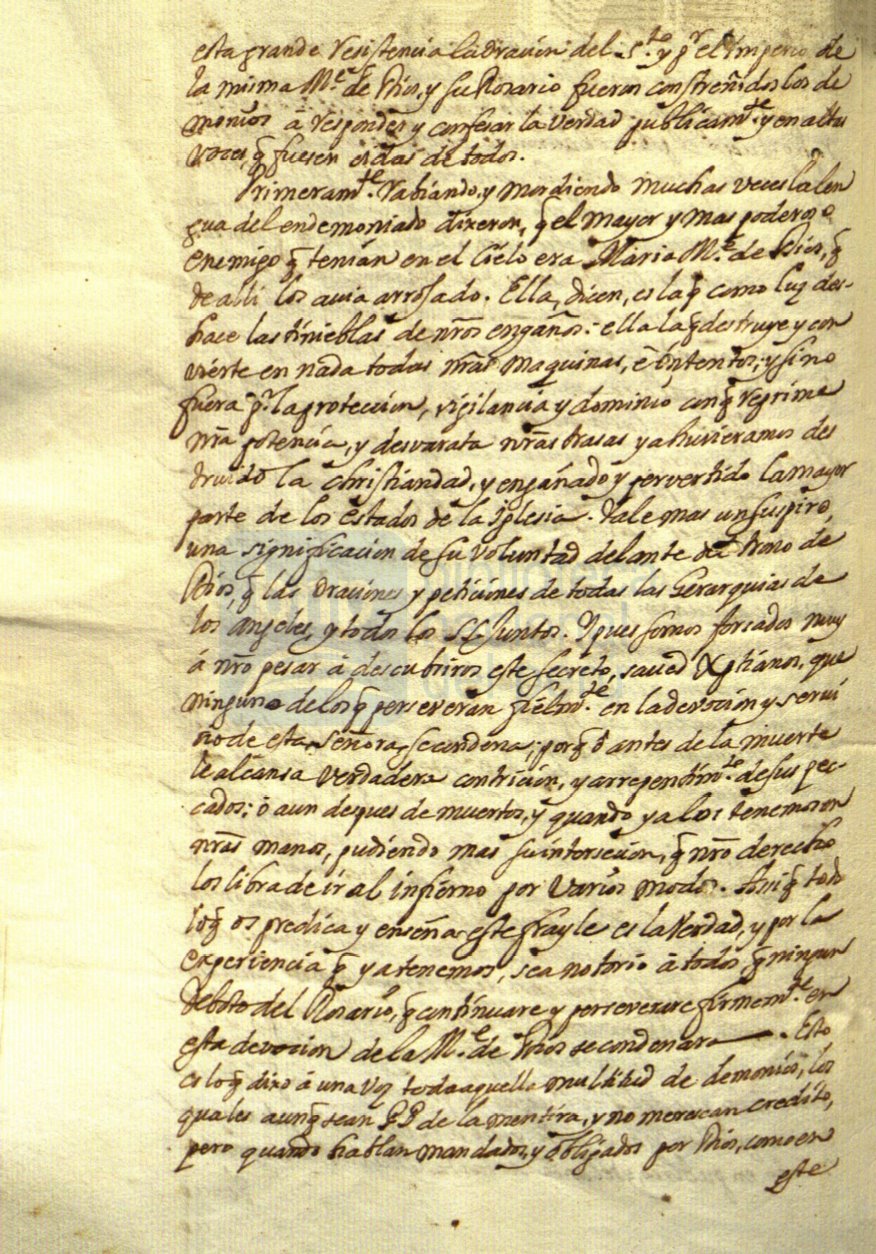 esta grande resistencia la oracion del S.to y pr el Imperio de
la misma M.e de Dios, y su Rosario fueron constreñidos los de
monios â responder, y confesar la verdad publicam.te y en altas
voces, q̃ fuesen oidas de todos.
Primeram.te Rabiando, y mordiendo muchas veces la len
gua del endemoniado dixeron, q̃ el mayor y mas poderoso
enemigo q̃ tenian en el Cielo era Maria M.e de Dios, q̃
de alli los avia arrojado. Ella, dicen, es la q̃ como luz des-
hace las tinieblas de nr̃os engaños: ella la q̃ destruye y con
vierte en nada todas nr̃as maquinas, è intentos; y si no
fuera pr la proteccion, vigilancia y dominio con q̃ reprime
nr̃a potencia, y desvarata nr̃as trasas ya huvieramos des
truido la christiandad, y engañado y pervertido la mayor
parte de los estados de la Iglesia. Vale mas un suspiro,
una significacion de su voluntad delante del trono de
Dios, q̃ las oraciones y peticiones de todas las Gerarquias de
los angeles, y todos los SS. Juntos. Y pues somos forsados muy
á nr̃o pesar â descubriros este secreto, saved Xp̃tianos, que
ninguno de los q̃ perseveran fielm.te en la devocion y servi
cio de esta Señora, se condena; porq̃ ô antes de la muerte
le alcansa verdadera contricion, y arrepentim.to de sus pec-
cados; ó aun despues de muertos, y quando ya los tenemos en
nr̃as manos, pudiendo mas su intersecion, q̃ nr̃o derecho
los libra de ir al infierno por varios modos. Assi q̃ todo
loq̃ os predica y enseña este frayle es la verdad, y por la
experiencia q̃ ya tenemos, sea notorio â todos q̃ ningun
deboto del Rosario, q̃ continuare y perseverare firmem.te en
esta devocion de la M.e de Dios se condenara. Esto
es loq̃ dixo á una voz toda aquella multitud de demonios, los
quales aunq̃ sean PP. de la mentira, y no merescan credito,
pero quando hablan mandados, y obligados por Dios, como en
este